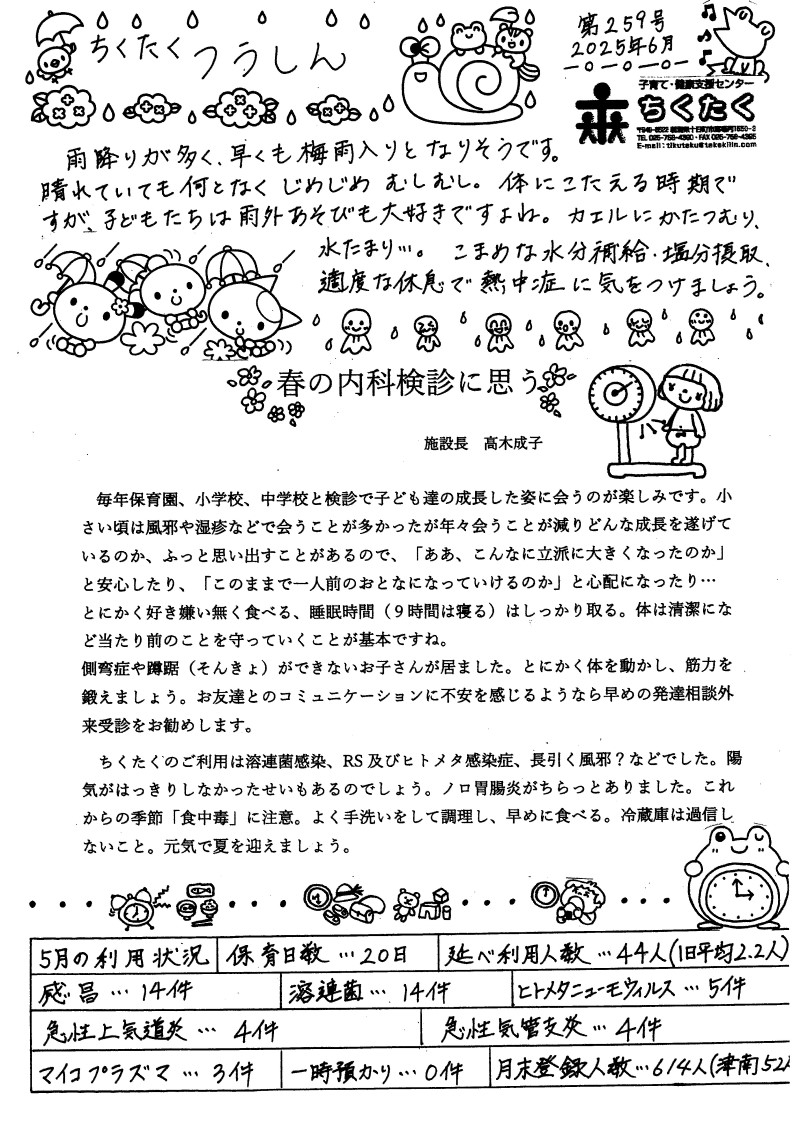 ちくたくつうしん
第259号
2025年6月
子育て・健康支援センター
ちくたく
雨降りが多く、早くも梅雨入りとなりそうです。
晴れていても何となくじめじめむしむし。体にこたえる時期で
すが、子どもたちは雨外あそびも大好きですよね。カエルにかたつむり、
水たまり…。こまめな水分補給・塩分摂取、
適度な休息で熱中症に気をつけましょう。
春の内科検診に思う
施設長 高木成子
毎年保育園、小学校、中学校と検診で子ども達の成長した姿に会うのが楽しみです。小
さい頃は風邪や湿疹などで会うことが多かったが年々会うことが減りどんな成長を遂げて
いるのか、ふっと思い出すことがあるので、「ああ、こんなに立派に大きくなったのか」
と安心したり、「このままで一人前のおとなになっていけるのか」と心配になったり…
とにかく好き嫌い無く食べる、睡眠時間（９時間は寝る）はしっかり取る。体は清潔にな
ど当たり前のことを守っていくことが基本ですね。
側弯症や蹲踞（そんきょ）ができないお子さんが居ました。とにかく体を動かし、筋力を
鍛えましょう。お友達とのコミュニケーションに不安を感じるようなら早めの発達相談外
来受診をお勧めします。
ちくたくのご利用は溶連菌感染、RS及びヒトメタ感染症、長引く風邪？などでした。陽
気がはっきりしなかったせいもあるのでしょう。ノロ胃腸炎がちらっとありました。これ
からの季節「食中毒」に注意。よく手洗いをして調理し、早めに食べる。冷蔵庫は過信し
ないこと。元気で夏を迎えましょう。
5月の利用状況 保育日数…20日 延べ利用人数…44人(1日平均2.2人)
感冒…14件 溶連菌…14件 ヒトメタニューモウィルス…5件
急性上気道炎…4件 急性気管支炎…4件
マイコプラズマ…3件 一時預かり…0件 月末登録人数…614人(津南52人